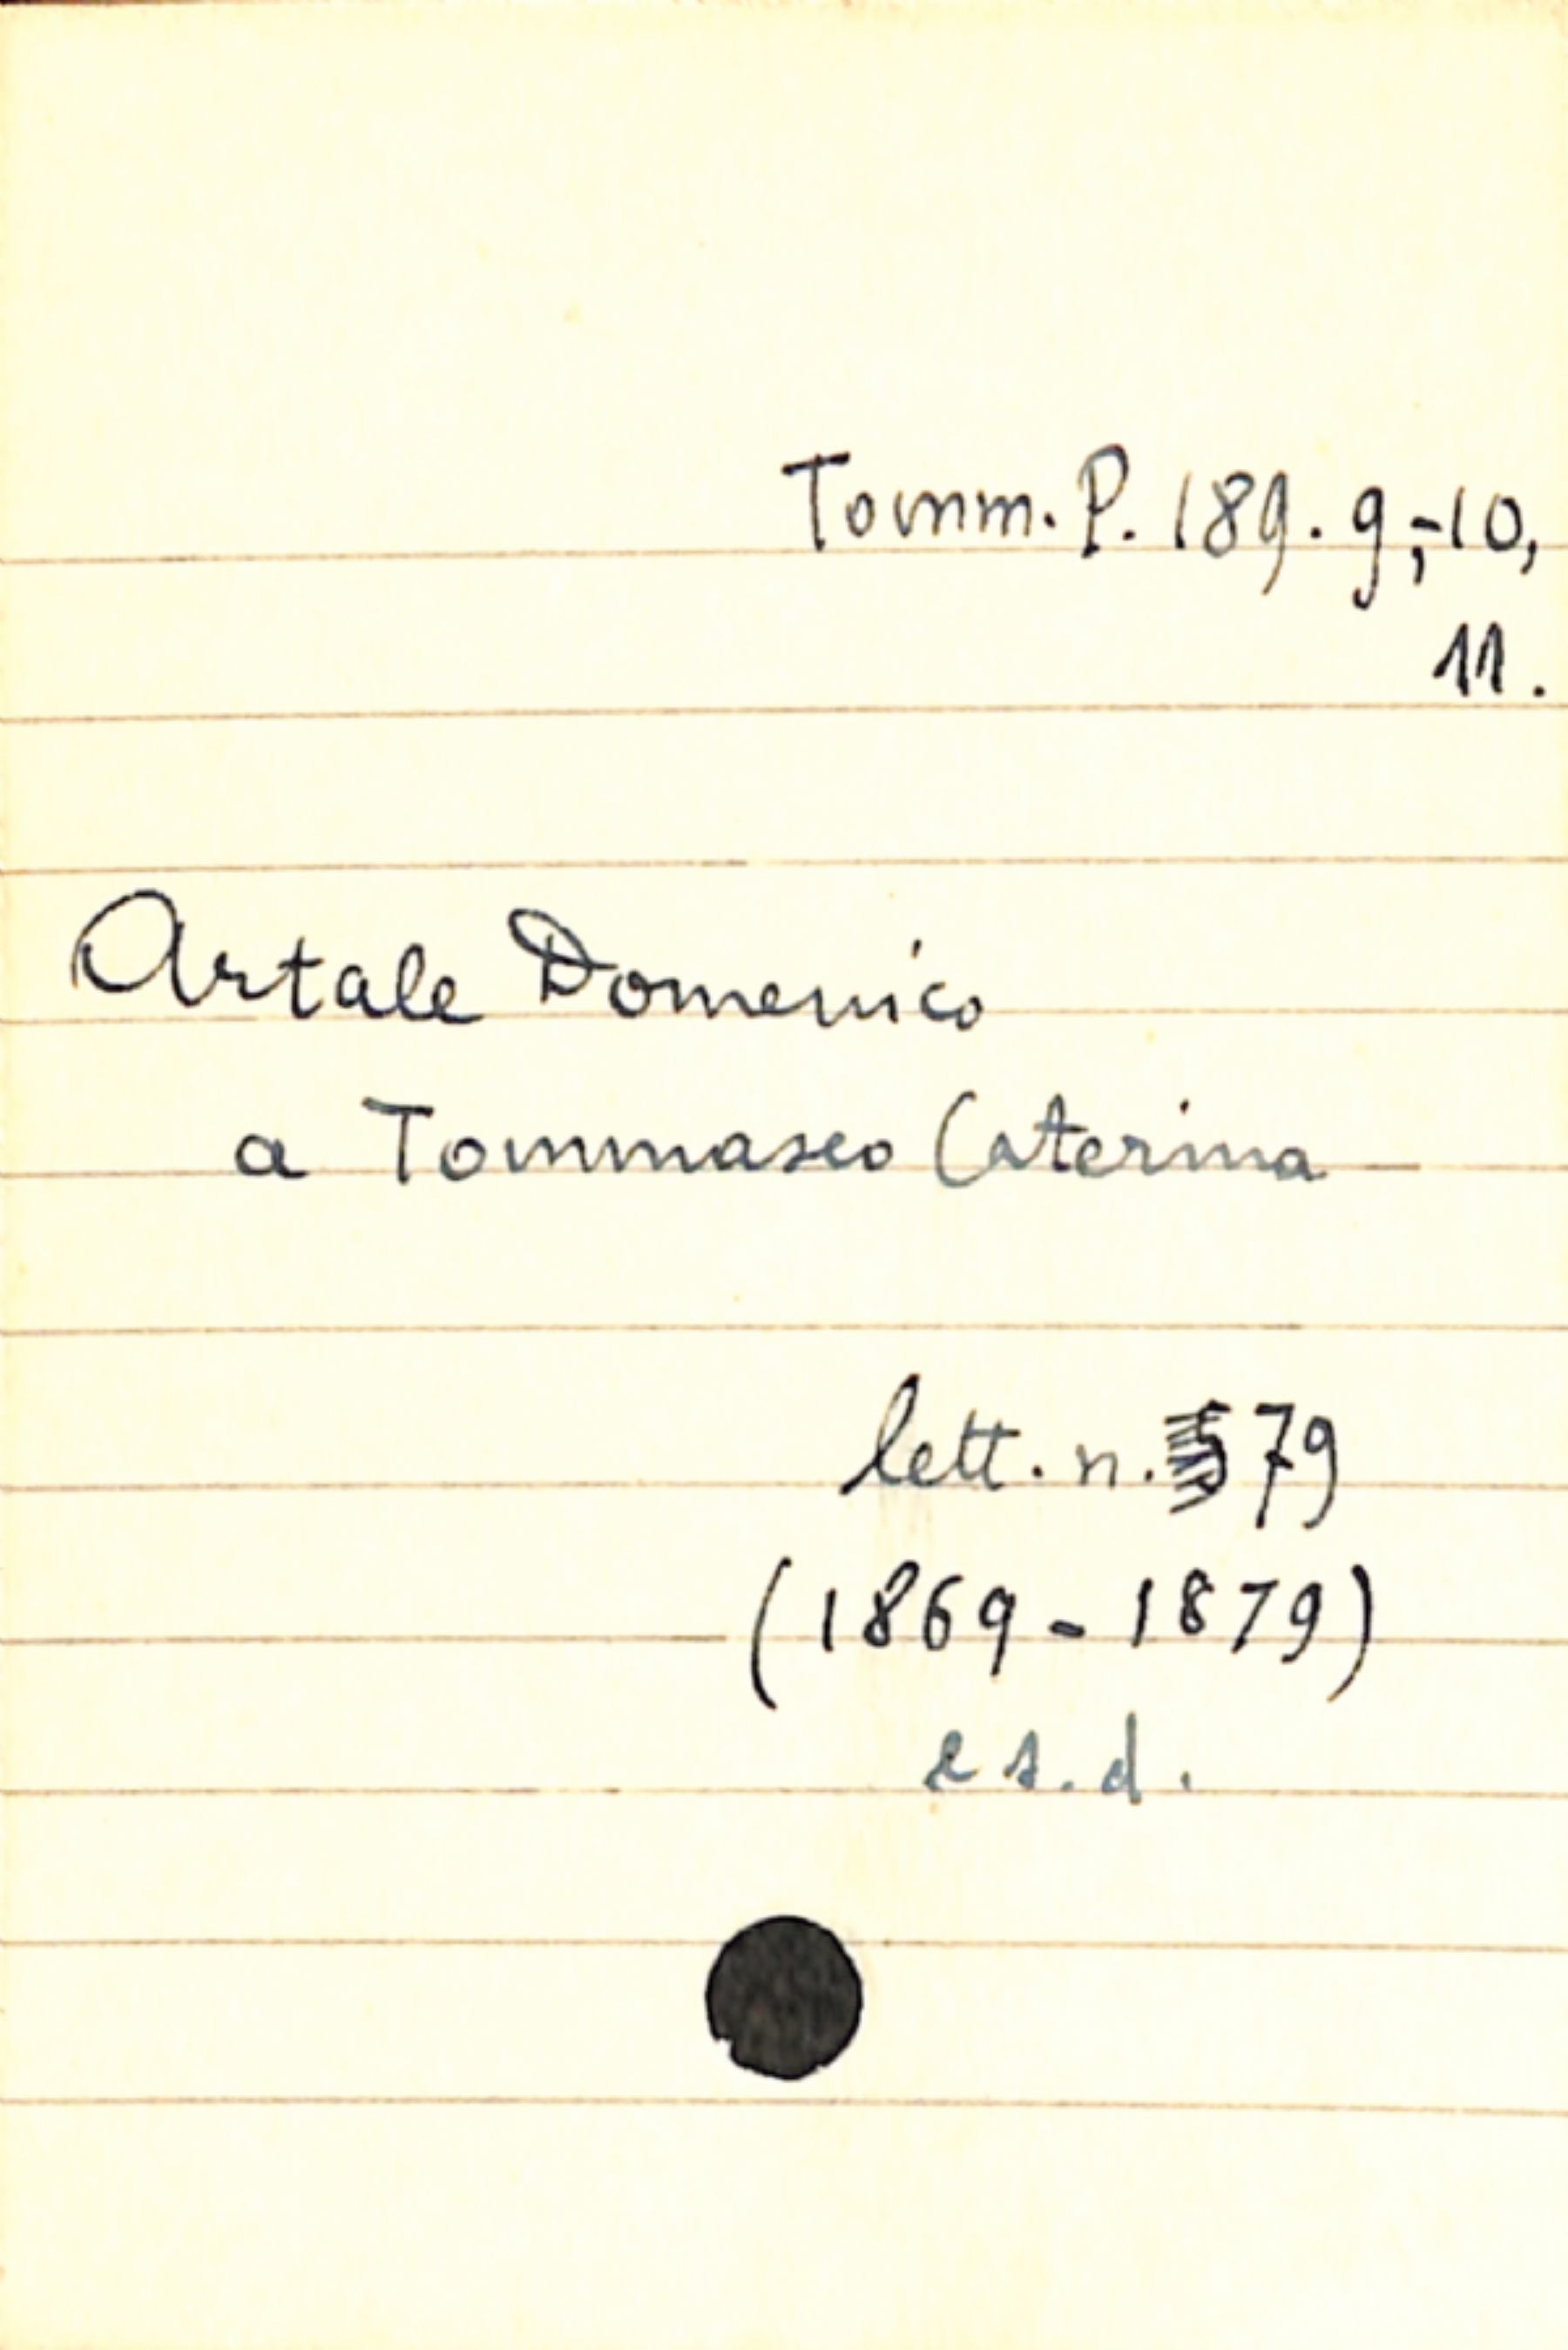 Tomm. P. 189. 9,-10,
11.
Artale Domenico
a Tommaseo Caterina
lett. n. 79
(1869-1879)
e s.d.